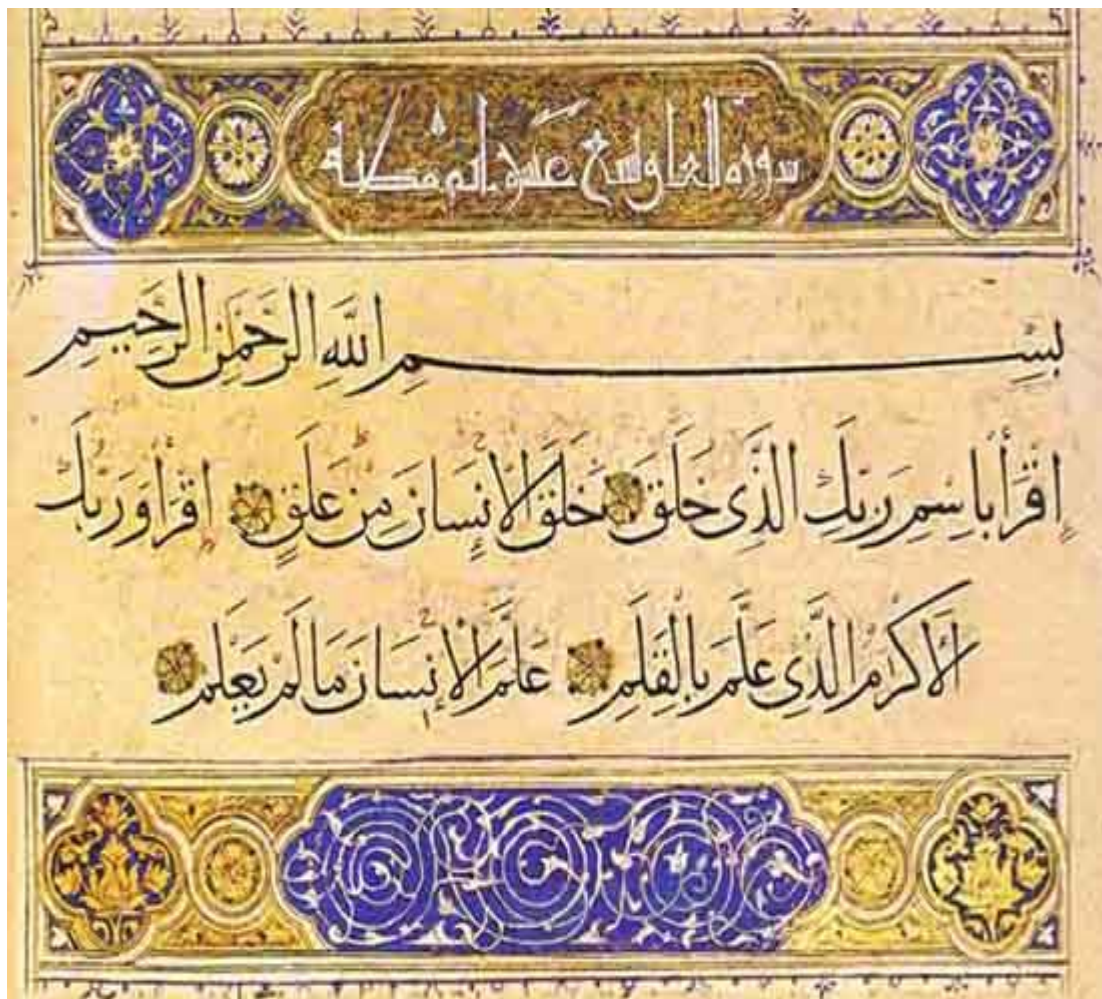 سورة العلق تسع عشرة اية مكية
بِسْمِ اللَّهِ الرَّحْمَنِ الرَّحِيمِ
اِقْرَأْ بِاسْمِ رَبِّكَ الَّذِى خَلَقَ خَلَقَ الْإِنْسَانَ مِنْ عَلَقٍ اِقْرَأْ وَرَبُّكَ
الْأَكْرَمُ الَّذِى عَلَّمَ بِالْقَلَمِ عَلَّمَ الْإِنْسَانَ مَا لَمْ يَعْلَمْ